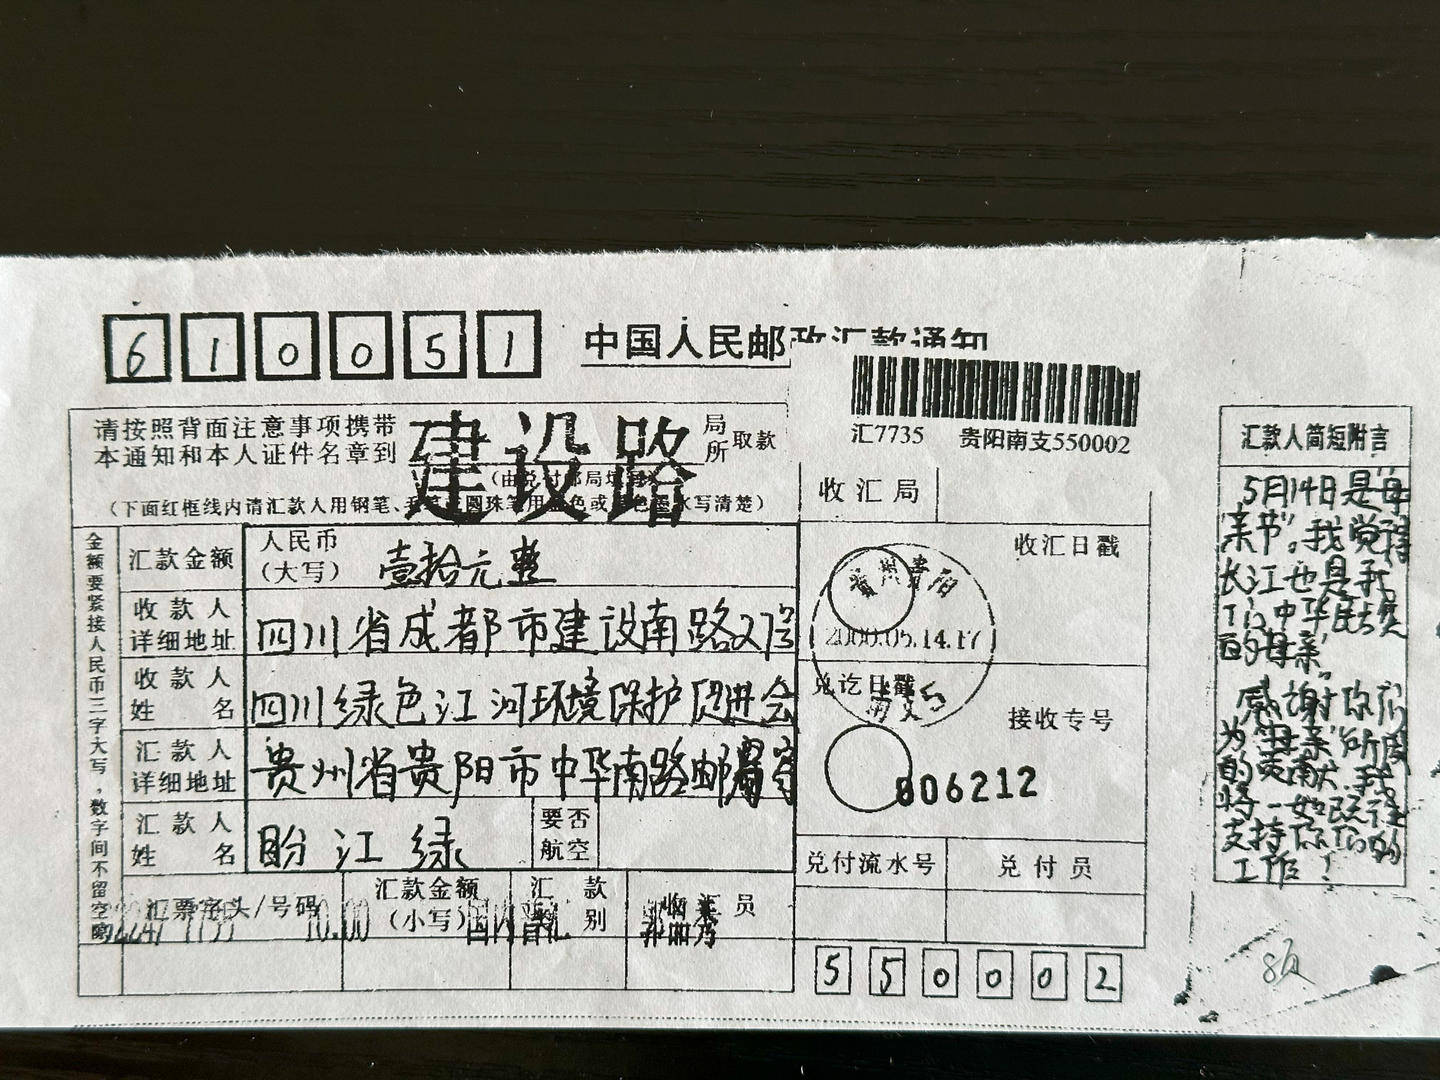 610051
中国人民邮政汇款通知
汇7735 贵阳南支550002
请按照背面注意事项携带
本通知和本人证件名章到
建设路
局
所
取款
(下面红框线内请汇款人用钢笔、
写清楚)
金额要紧接人民币三字大写,数字间不留空隙
汇款金额
人民币
(大写)
壹拾元整
收款人
详细地址
四川省成都市建设南路27号
收款人
姓名
四川绿色江河环境保护促进会
汇款人
详细地址
贵州省贵阳市中华南路邮
汇款人
姓名
盼江绿
要否
航空
汇票字头/号码
汇款金额
(小写)
汇款
别
员
7735
10.00
国内普汇
收汇局
收汇日戳
贵州贵阳
2000.05.14.17
南支5
兑讫日戳
接收专号
006212
兑付流水号
兑付员
550002
汇款人简短附言
5月14日是“母
亲节”。我觉得
长江也是我
们中华民族
的“母亲”。
感谢你们
为“母亲”所做
的贡献,我
将一如既往
支持你们的
工作!